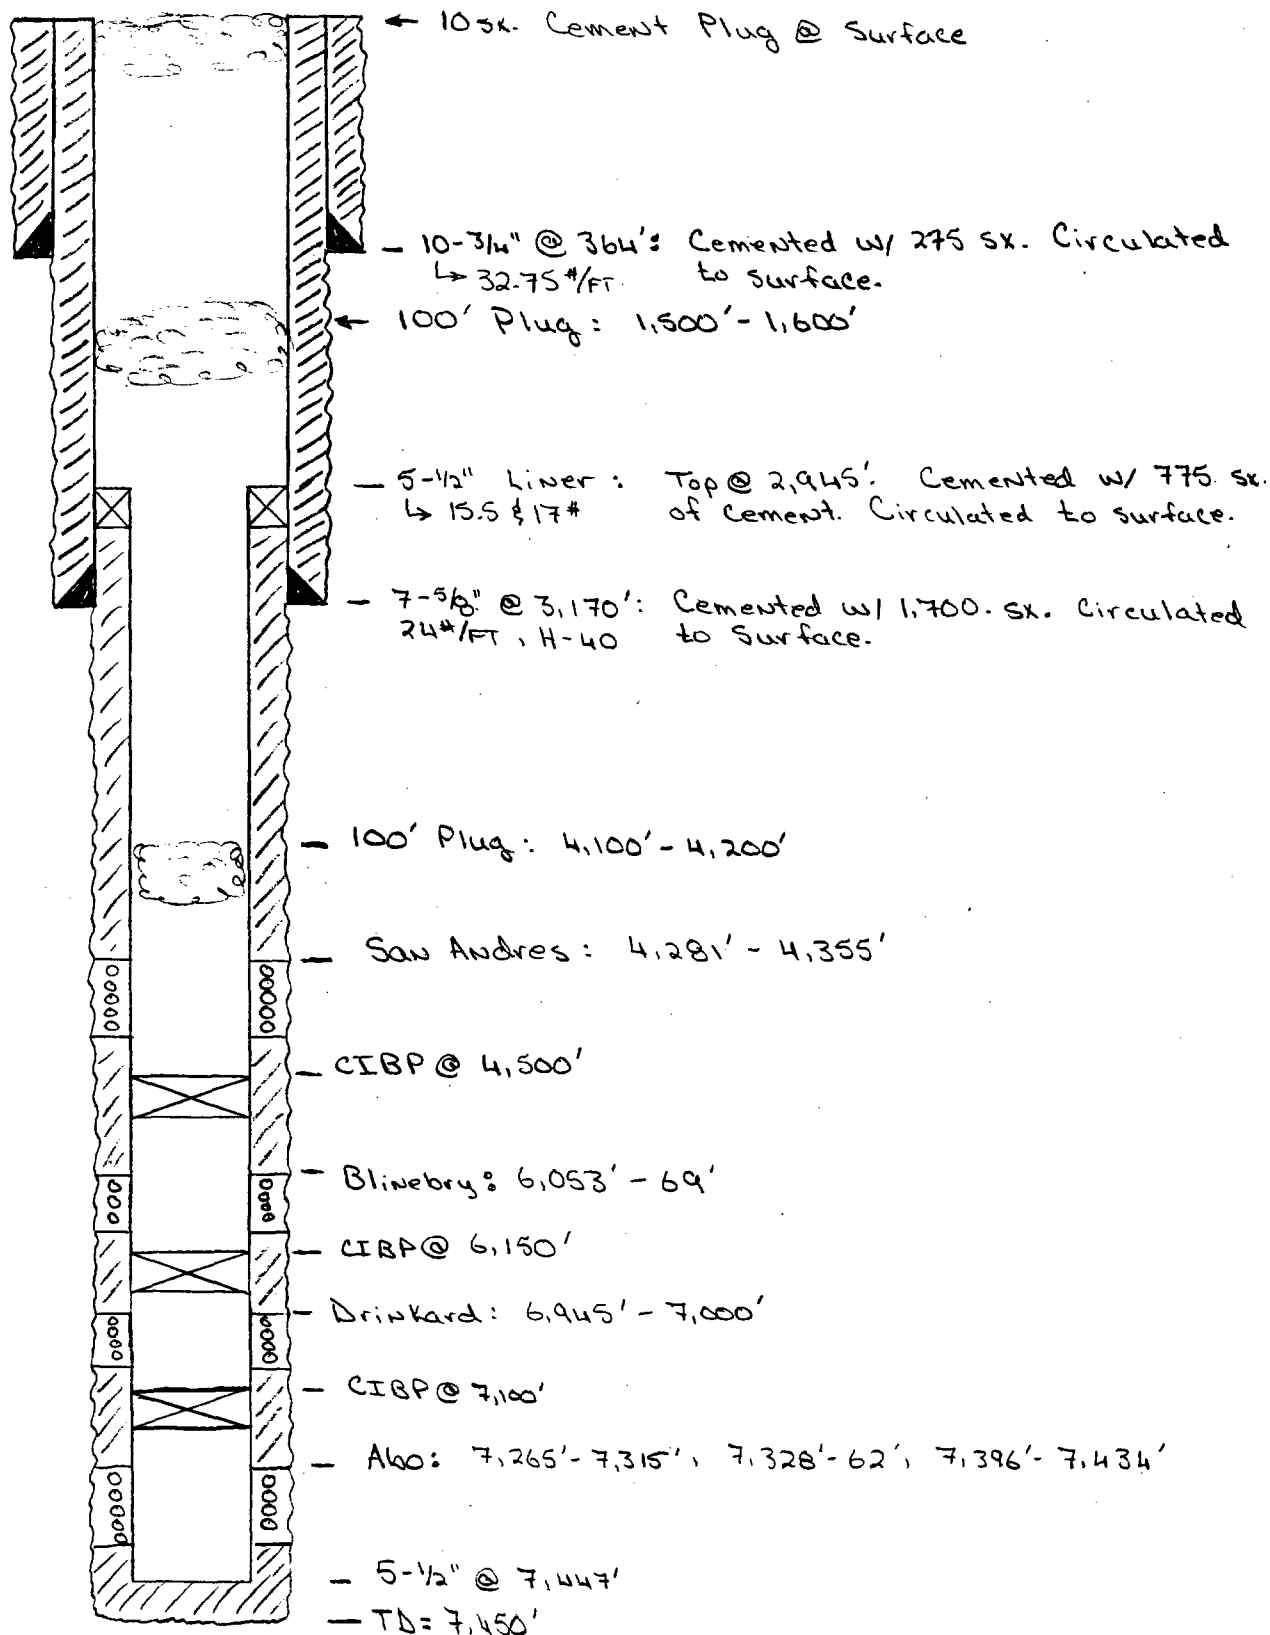 ← 10 sx. Cement Plug @ Surface
— 10-3/4" @ 364': Cemented w/ 275 sx. Circulated
↳ 32.75 #/FT to surface.
← 100' Plug: 1,500' - 1,600'
— 5-1/2" Liner: Top @ 2,945'. Cemented w/ 775 sx.
↳ 15.5 & 17# of cement. Circulated to surface.
— 7-5/8" @ 3,170': Cemented w/ 1,700 sx. Circulated
24#/FT, H-40 to surface.
— 100' Plug: 4,100' - 4,200'
— San Andres: 4,281' - 4,355'
— CIBP @ 4,500'
— Blinebry: 6,053' - 69'
— CIBP @ 6,150'
— Drinkard: 6,945' - 7,000'
— CIBP @ 7,100'
— Abo: 7,265' - 7,315', 7,328' - 62', 7,396' - 7,434'
— 5-1/2" @ 7,447'
— TD = 7,450'